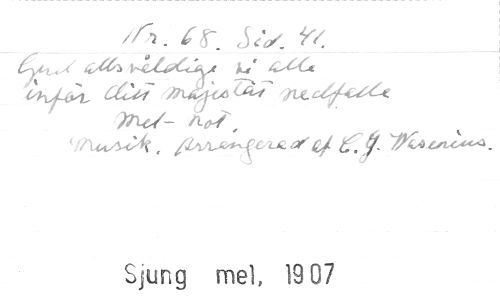 Nr. 68. Sid. 41.
Gud allsvåldige vi alla
inför ditt majestät nedfalle
Mel-not.
Musik. Arrangerad af C. G. Wasenius.
Sjung mel, 1907